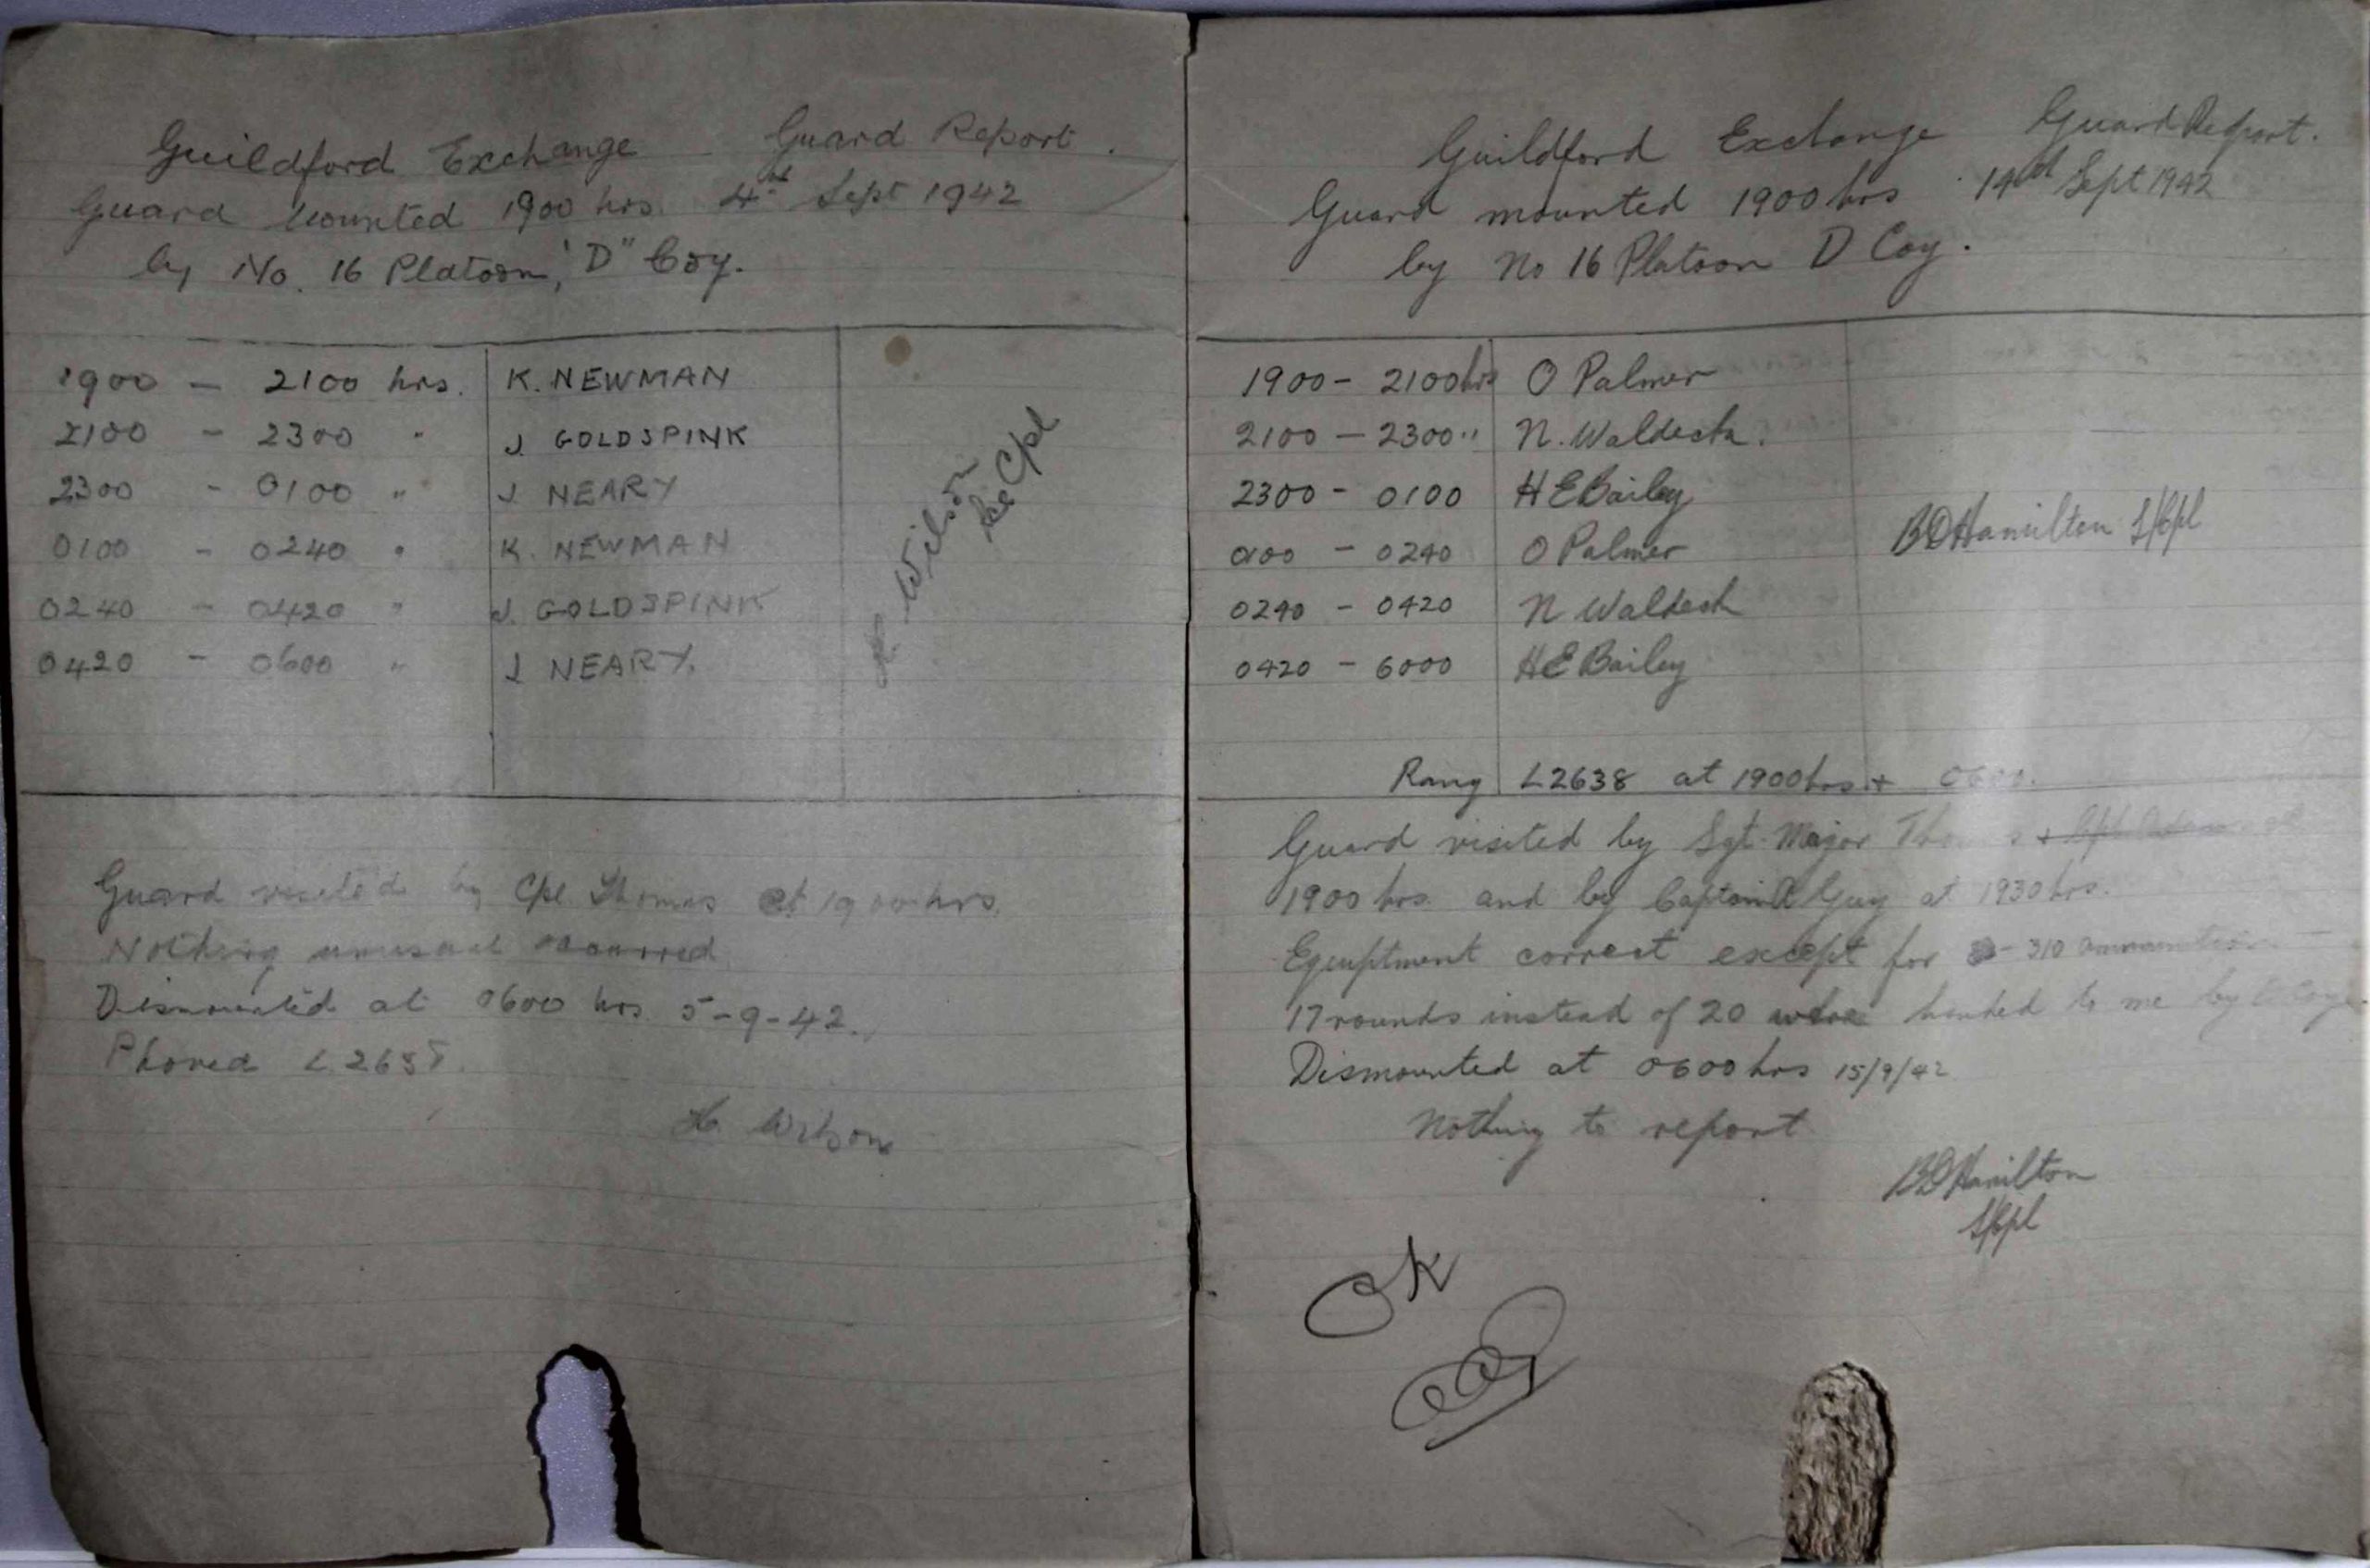 Guildford Exchange Guard Report.
Guard Mounted 1900 hrs. 4th Sept 1942
by No. 16 Platoon, "D" Coy.
1900 - 2100 hrs. K. NEWMAN
2100 - 2300 " J. GOLDSPINK
2300 - 0100 " J NEARY
0100 - 0240 " K. NEWMAN
0240 - 0420 " J. GOLDSPINK
0420 - 0600 " J NEARY.
Wilson
Cpl
Guard visited by Cpl Thomas at 1900 hrs.
Nothing unusual occurred
Dismounted at 0600 hrs 5-9-42.
Phoned L2638.
H. Wilson
Guildford Exchange Guard Report.
Guard mounted 1900 hrs 14th Sept 1942
by No 16 Platoon D Coy.
1900 - 2100 hrs O Palmer
2100 - 2300 " N. Waldeck.
2300 - 0100 H E Bailey
0100 - 0240 O Palmer
0240 - 0420 N Waldeck
0420 - 6000 H E Bailey
B D Hamilton L/Cpl
Rang L2638 at 1900 hrs + 0600.
Guard visited by Sgt. Major at
1900 hrs. and by Captain Guy at 1930 hrs.
Equiptment correct except for 310 ammunition
17 rounds instead of 20 were handed to me by Coy.
Dismounted at 0600 hrs 15/9/42
Nothing to report
B D Hamilton
L/Cpl
OK